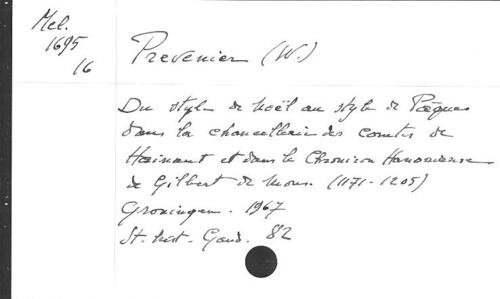 Mel.
1695
16
Prevenier (W.)
Du style de Noël au style de Pâques
dans la chancellerie des comtes de
Hainaut et dans le Chronicon Hanoniense
de Gilbert de Mons. (1171-1205)
Groningen. 1967
St. hist. Gand. 82